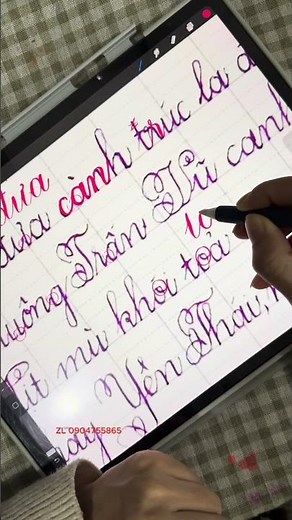 đưa
đưa cành trúc la đ
tr
uông Trấn Vũ canh
tọ
ịt mù khói tỏa
ày Yên Thái,
ZL 0904755865